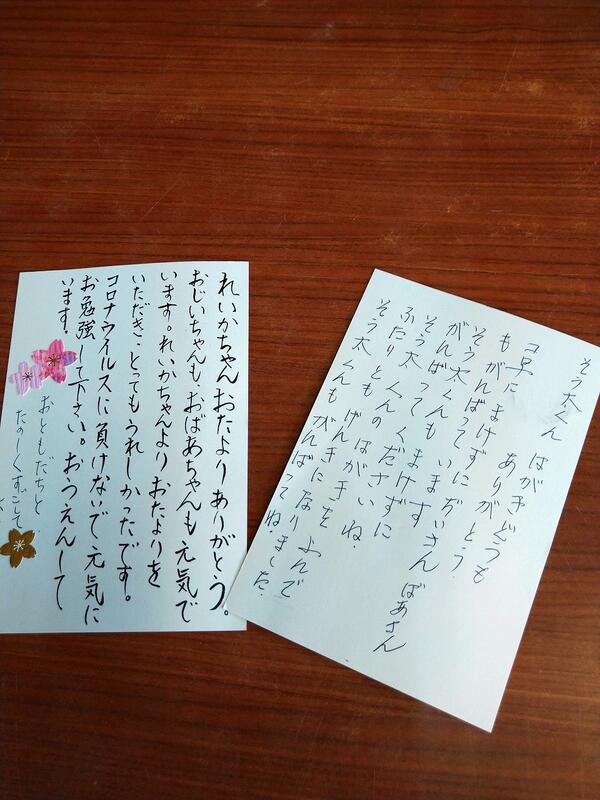 れいかちゃんおたよりありがとう。
おじいちゃんもおばあちゃんも元気で
います。れいかちゃんよりおたよりを
いただきとってもうれしかったです。
コロナウイルスに負けないで元気に
お勉強して下さい。おうえんして
います。
おともだちと
たのしくすごして
そう太くん はがき どうも
ありがとう.
コロナに まけずに ぢいさん ばあさん
も がんばって います
そう太くんも まけずに
がんばって ください ね.
そう太くんの はがきを よんで
ふたりとも げんきに なりました.
そう太くんも がんばってね.